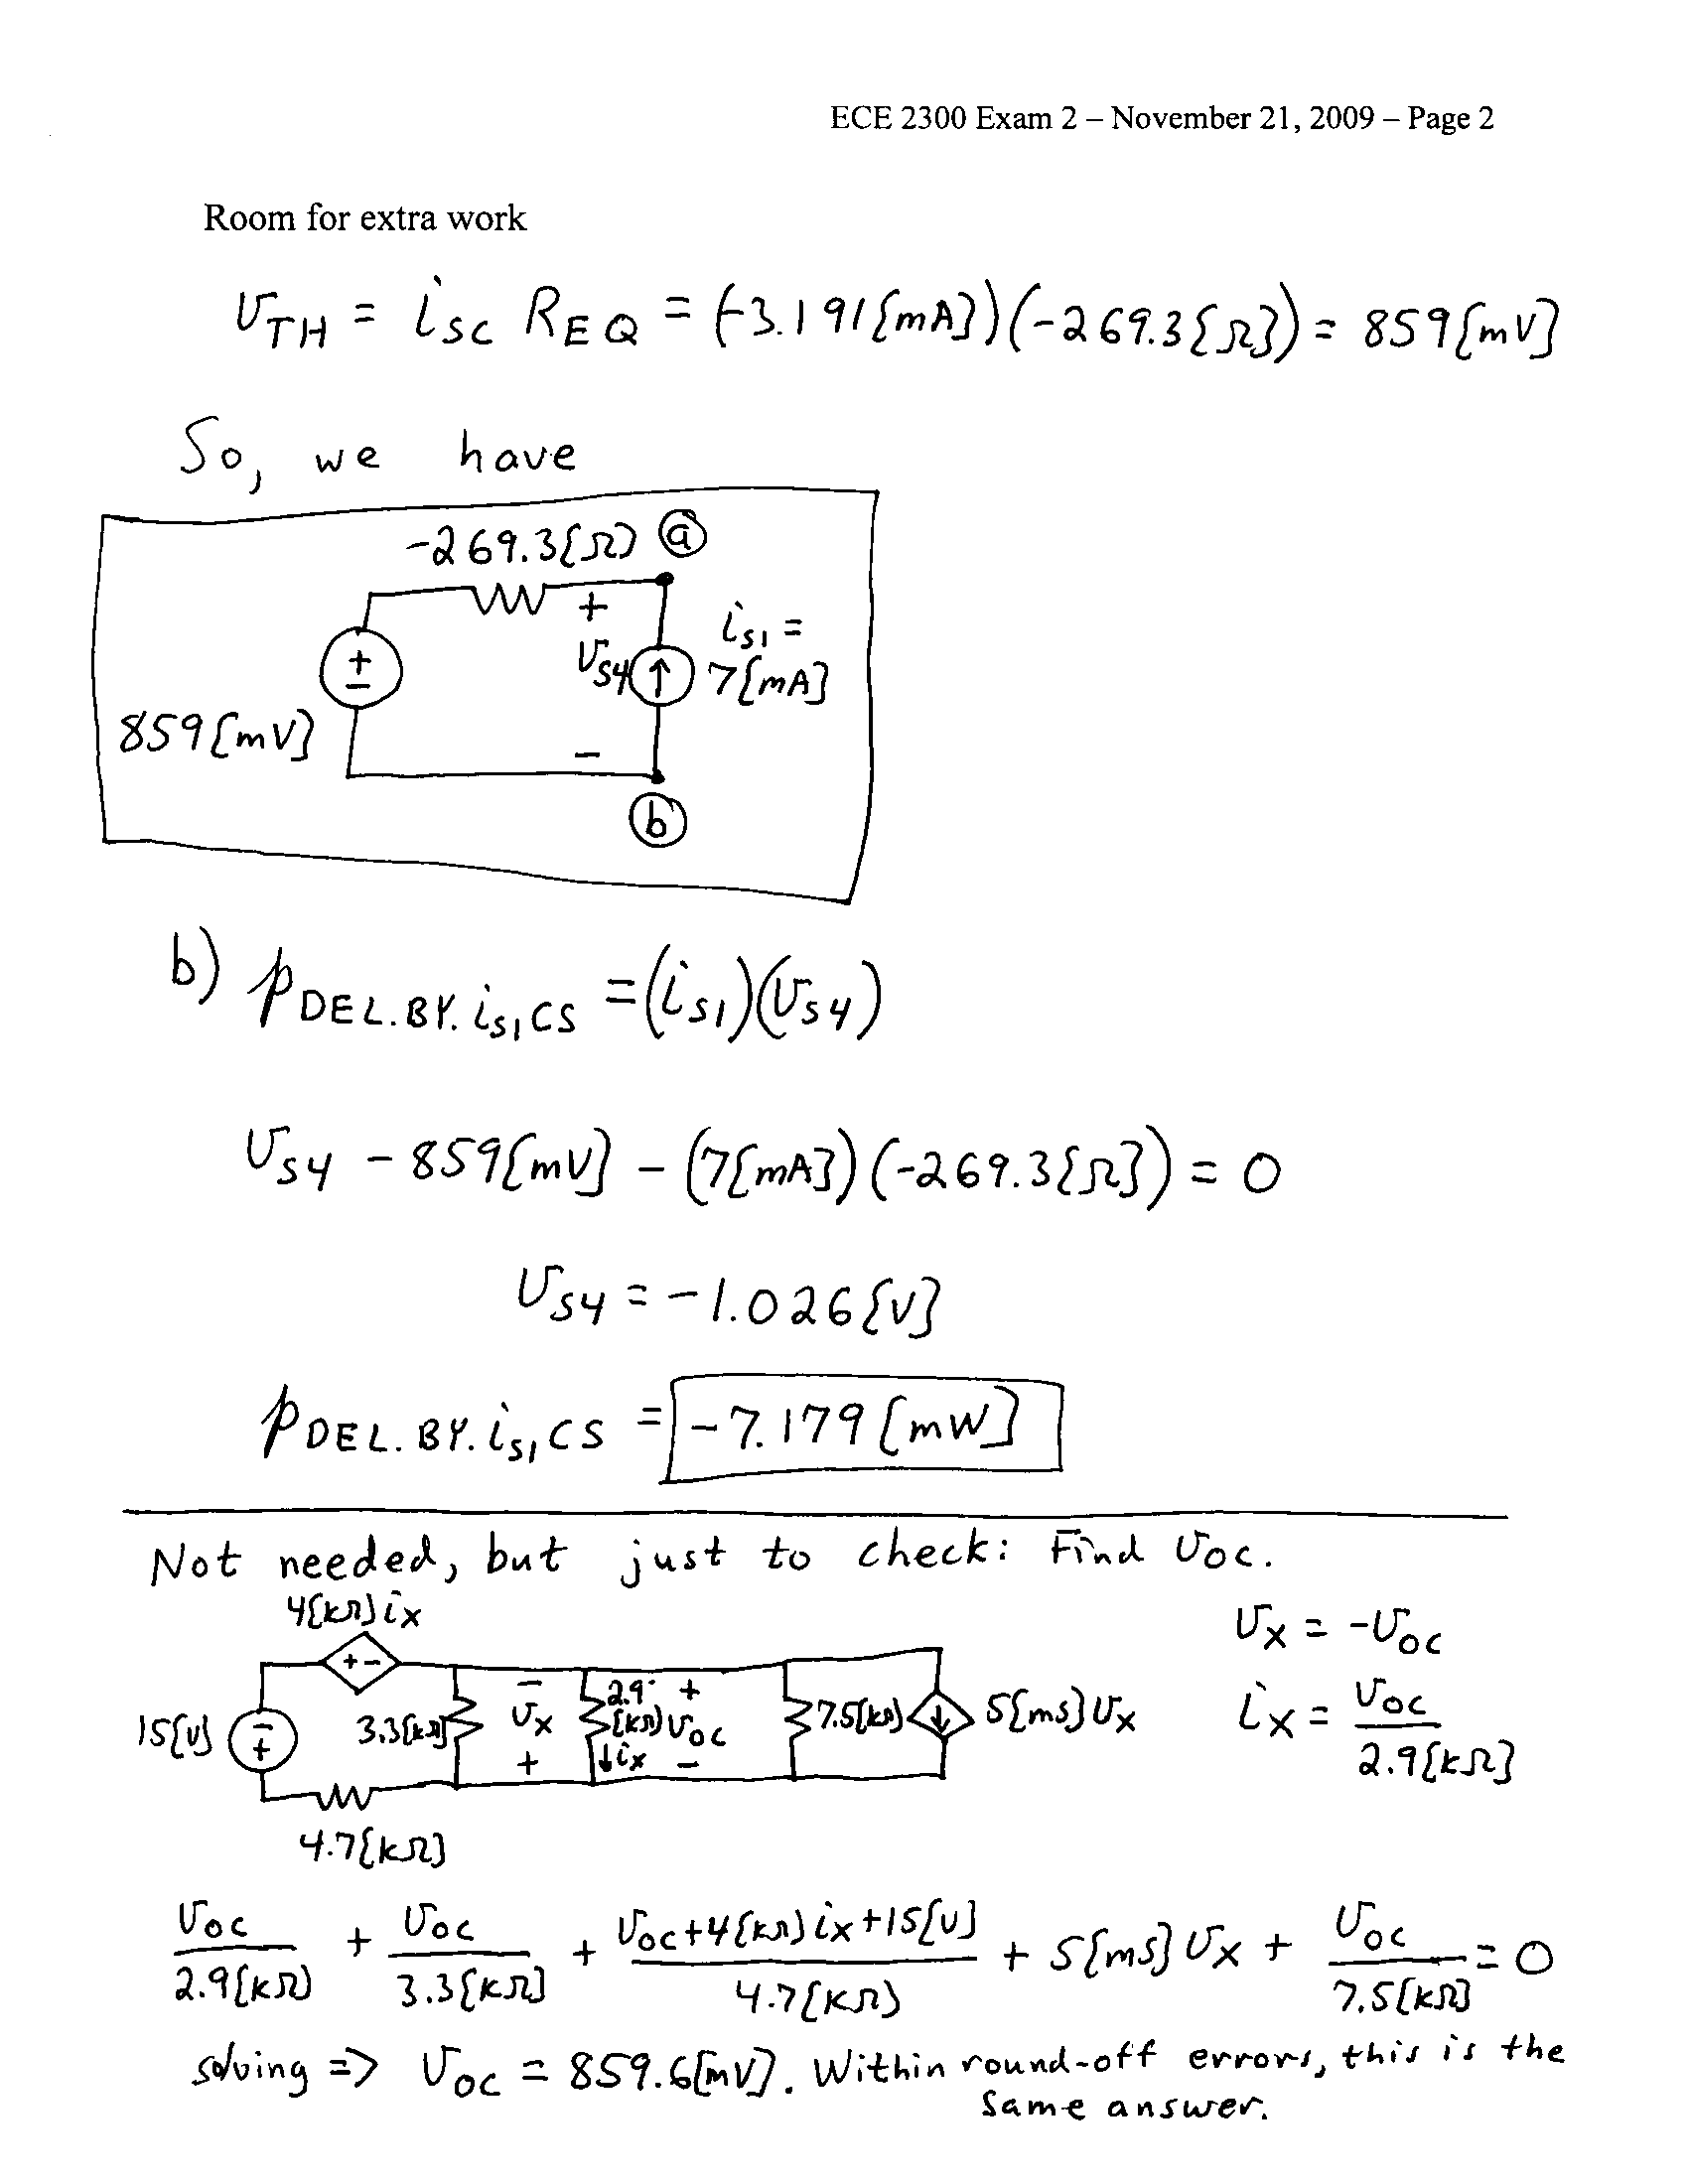 ECE 2300 Exam 2 – November 21, 2009 – Page 2
Room for extra work
v_TH = i_SC R_EQ = (-3.191[mA])(-269.3[Ω]) = 859[mV]
So, we have
-269.3[Ω] ⓐ
+
i_S1 =
v_S4 7[mA]
+
-
859[mV]
-
ⓑ
b) p_DEL.BY.i_S1CS = (i_S1)(v_S4)
v_S4 - 859[mV] - (7[mA])(-269.3[Ω]) = 0
v_S4 = -1.026[V]
p_DEL.BY.i_S1CS = -7.179[mW]
Not needed, but just to check: Find v_OC.
4[kΩ]i_X
v_X = -v_OC
+ -
15[V] - + 3.3[kΩ] - v_X + 2.9[kΩ] i_X + v_OC - 7.5[kΩ] 5[mS]v_X
i_X = v_OC / 2.9[kΩ]
4.7[kΩ]
v_OC / 2.9[kΩ] + v_OC / 3.3[kΩ] + v_OC+4[kΩ]i_X+15[V] / 4.7[kΩ] + 5[mS]v_X + v_OC / 7.5[kΩ] = 0
solving => v_OC = 859.6[mV]. Within round-off errors, this is the
same answer.